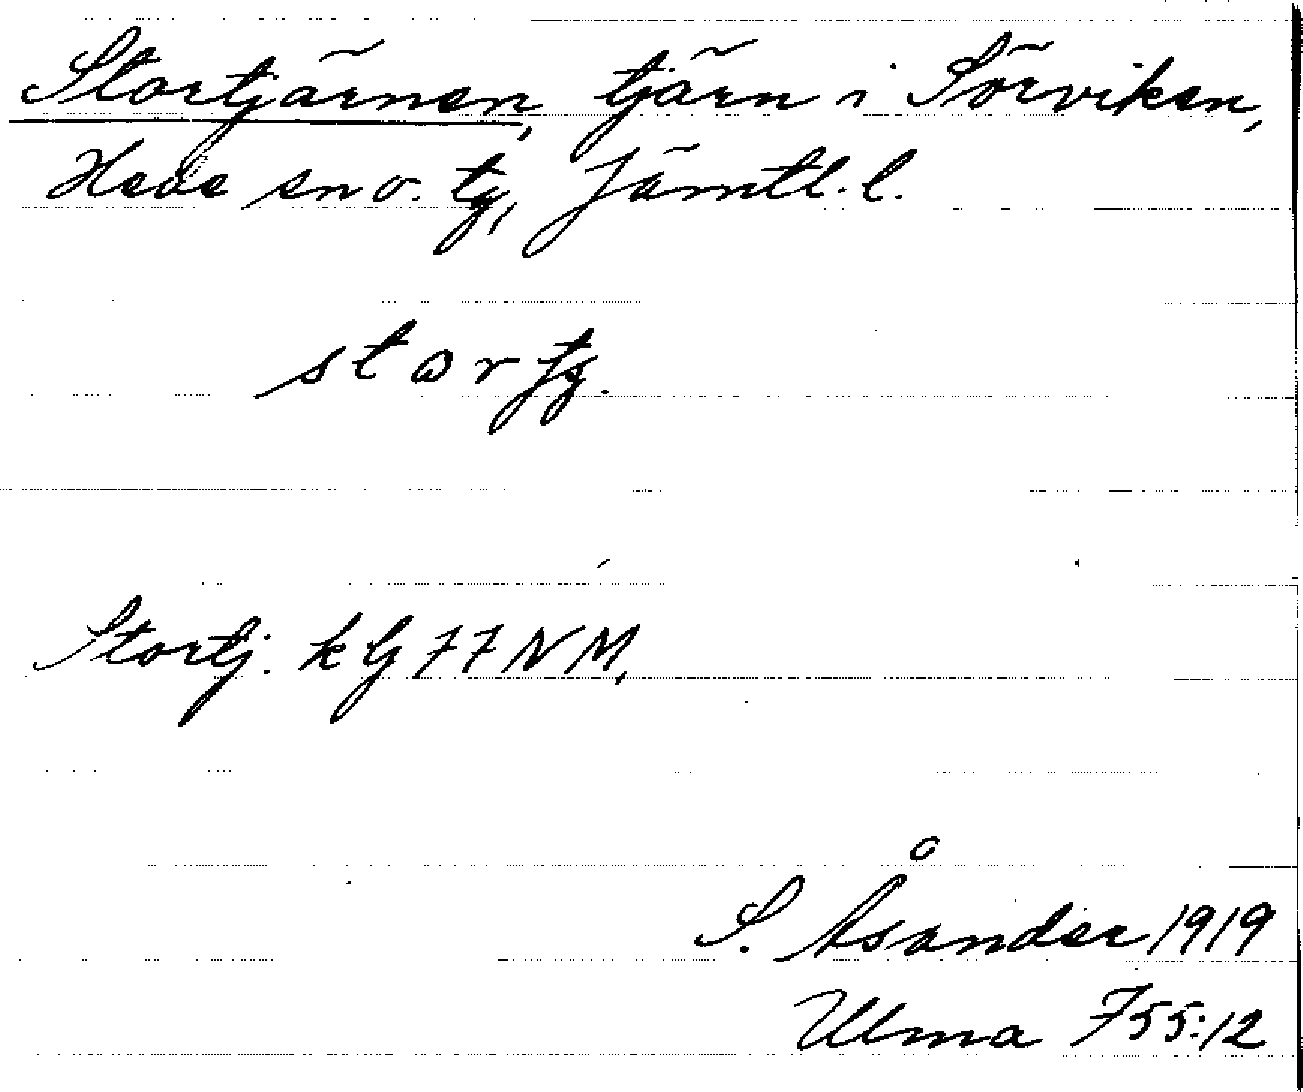 Stortjärnen, tjärn i Sörviken,
Hede sn o. tg, Jämtl. l.
stortj.
Stortj. kG 77 NM,
S. Åsander 1919
Ulma 755:12